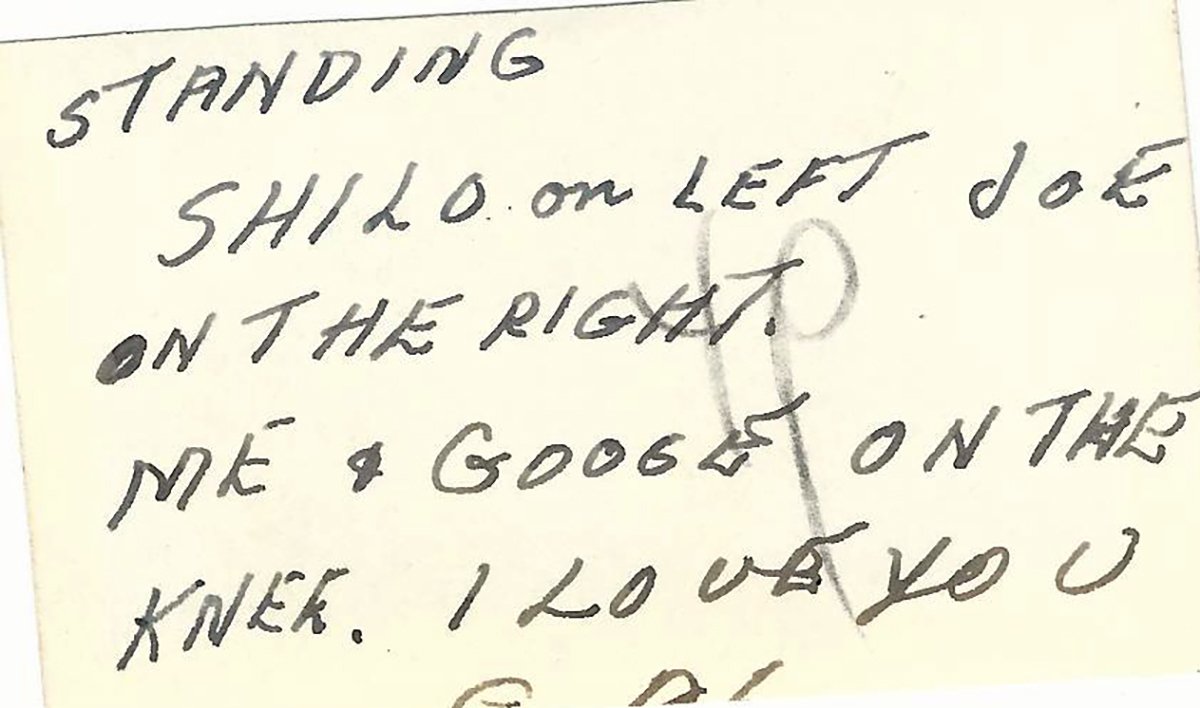 STANDING
SHILO on LEFT JOE
ON THE RIGHT.
ME & GOOGE ON THE
KNEE. I LOVE YOU